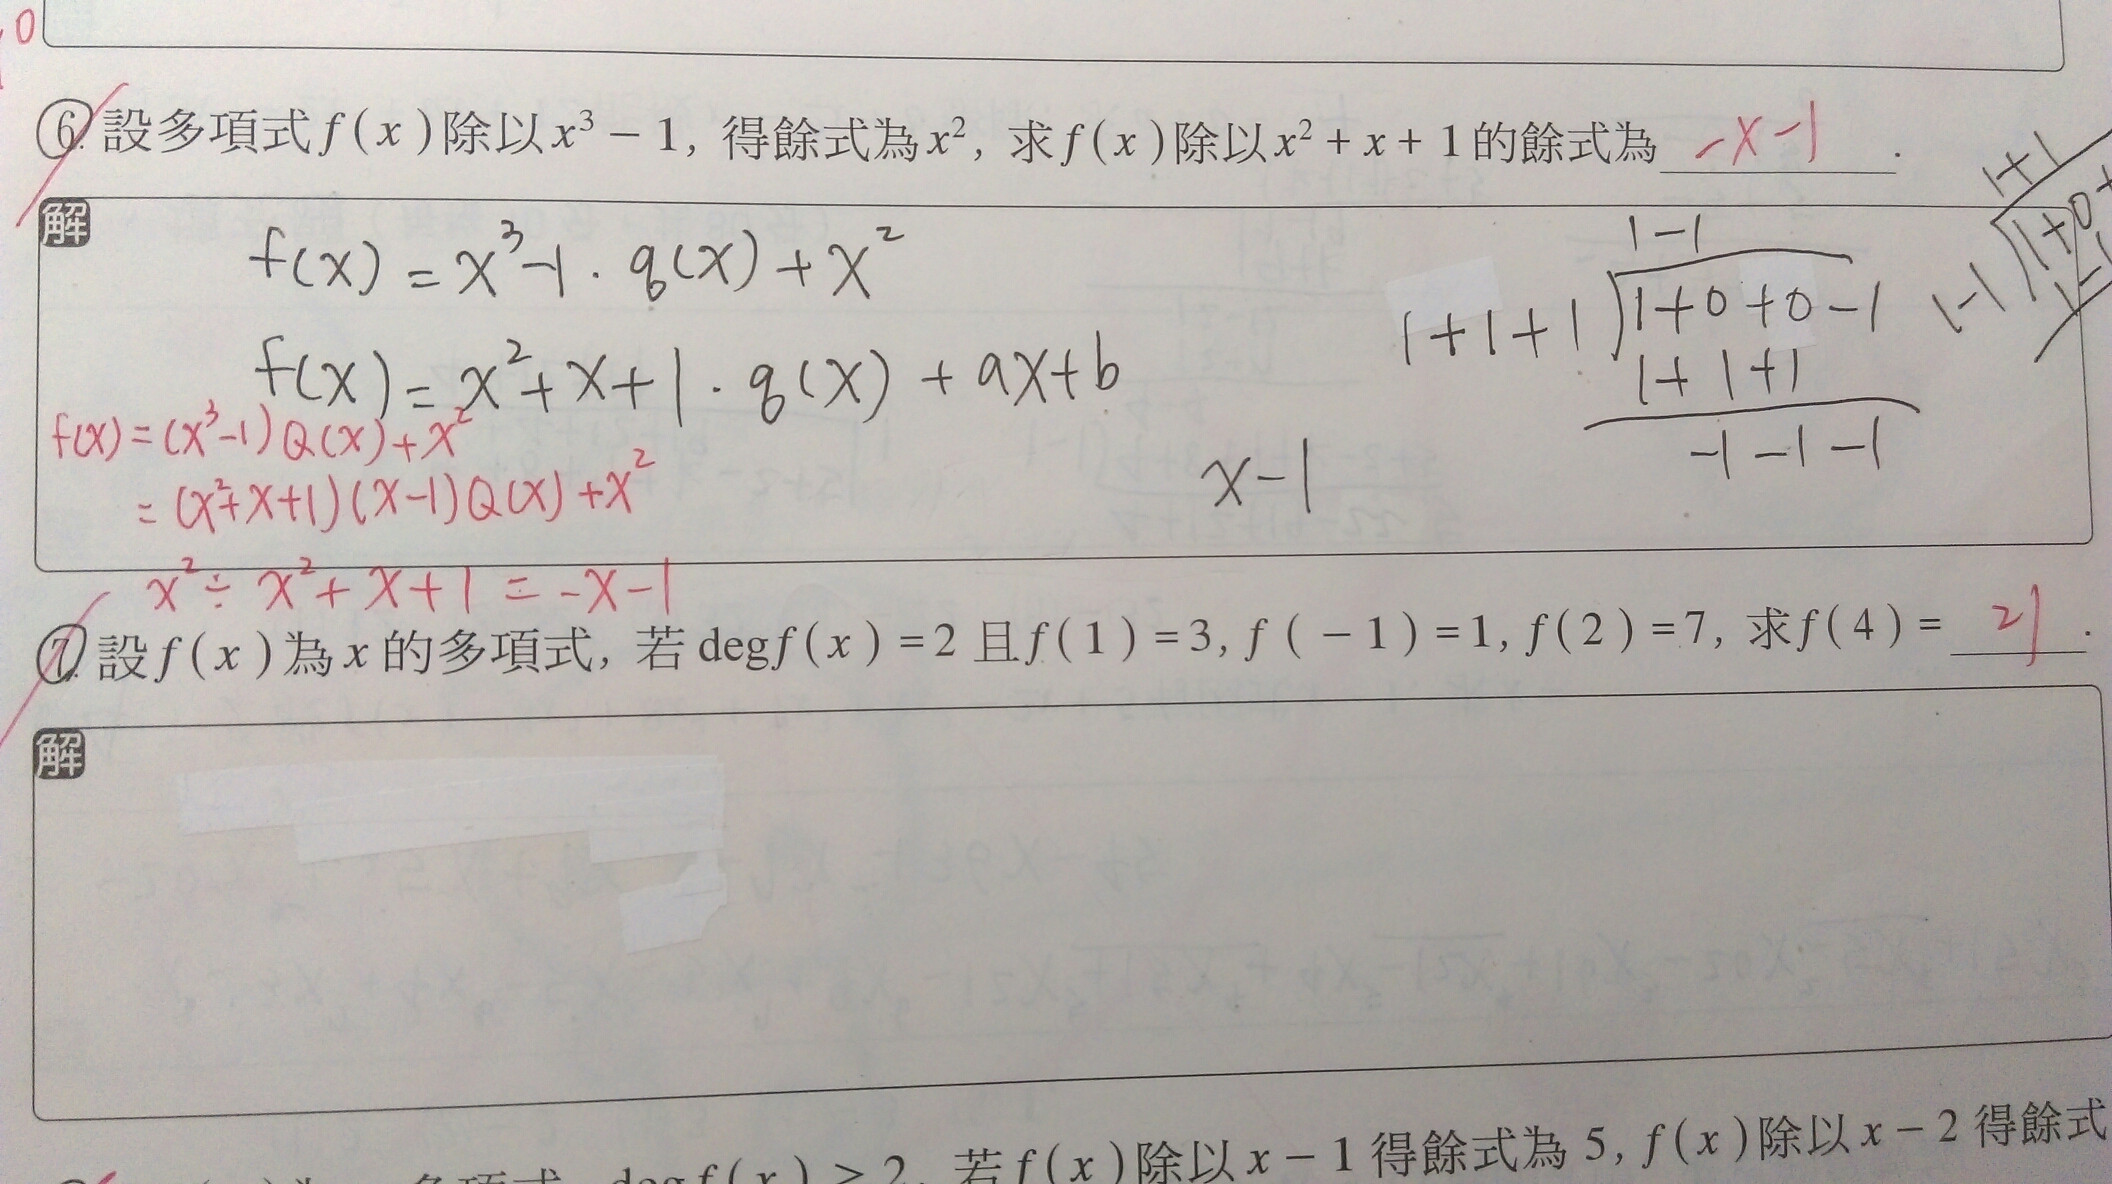 0
⑥ 設多項式f(x)除以x³ − 1, 得餘式為x², 求f(x)除以x² + x + 1的餘式為 -x-1 .
解
f(x) = x³-1 · q(x) + x²
f(x) = x²+x+1 · q(x) + ax+b
f(x) = (x³-1)Q(x)+x²
= (x²+x+1)(x-1)Q(x)+x²
x² ÷ x²+x+1 = -x-1
x-1
1-1
1+1+1 ) 1+0+0-1
1+1+1
-1-1-1
1+1
1-1 ) 1+0+
1-1
⑦ 設f(x)為x的多項式, 若 degf(x) = 2 且f(1) = 3, f(−1) = 1, f(2) = 7, 求f(4) = 21 .
解
多項式, degf(x) > 2, 若f(x)除以x − 1 得餘式為 5, f(x)除以x − 2 得餘式